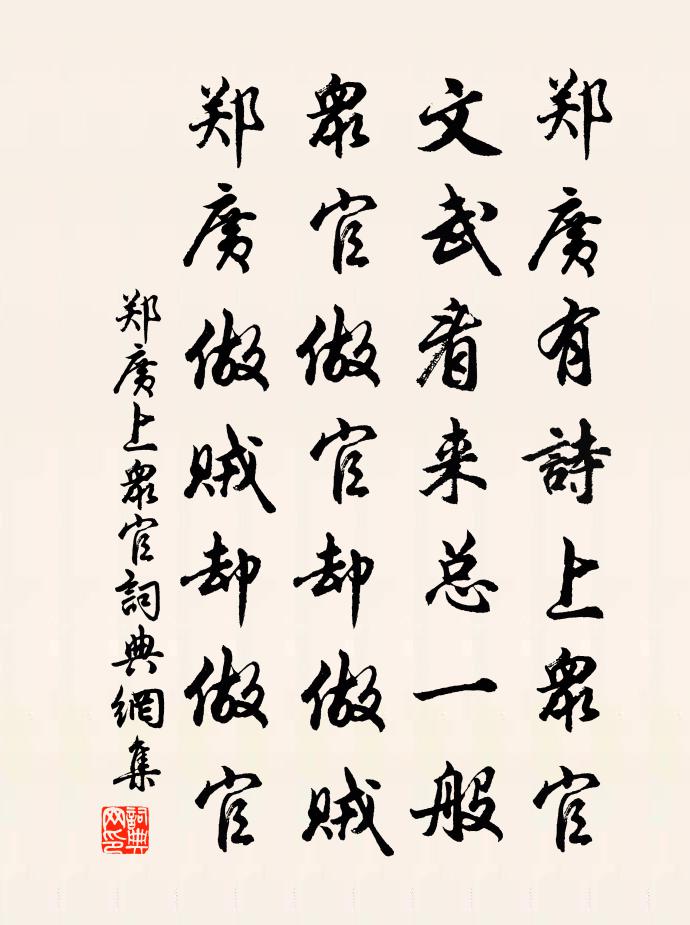 郑廣有詩上眾官
文武看来总一般
眾官做官却做贼
郑廣做贼却做官
郑廣上眾官詞典網集
詞典網印